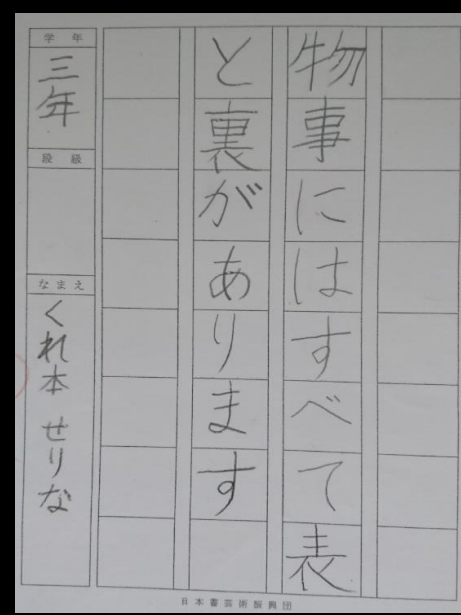 物事にはすべて表
と裏があります
学年
三年
段級
なまえ
くれ本 せりな
日本書芸術振興団